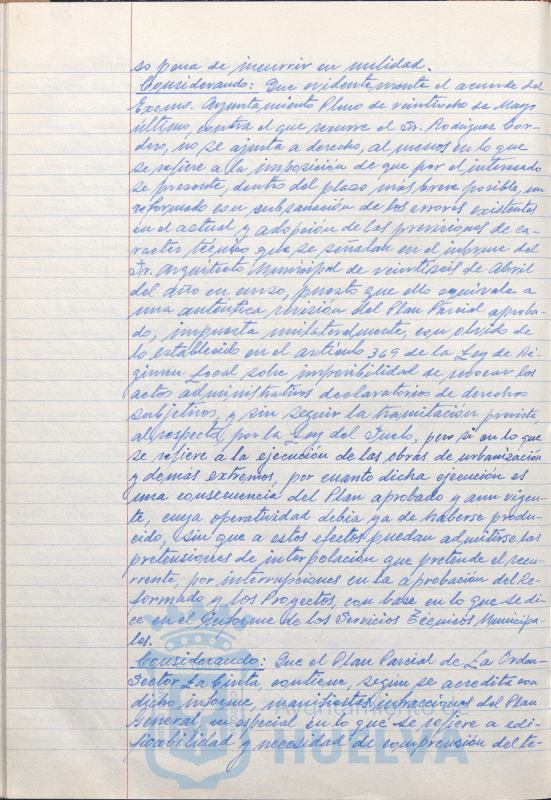 so pena de incurrir en nulidad.
Considerando: Que evidentemente el acuerdo del
Excmo. Ayuntamiento Pleno de veintiocho de Mayo
último, contra el que recurre el Sr. Rodríguez Cor-
dero, no se ajusta a derecho, al menos en lo que
se refiere a la imposición de que por el interesado
se presente, dentro del plazo más breve posible, un
reformado con subsanación de los errores existentes
en el actual y adopción de las previsiones de ca-
racter técnico que se señalan en el informe del
Sr. Arquitecto Municipal de veintiseis de Abril
del año en curso, puesto que ello equivale a
una auténtica revisión del Plan Parcial aproba-
do, impuesta unilateralmente, con olvido de
lo establecido en el artículo 369 de la Ley de Ré-
gimen Local sobre imposibilidad de revocar los
actos administrativos declaratorios de derechos
subjetivos, y sin seguir la tramitación prevista,
al respecto, por la Ley del Suelo, pero sí en lo que
se refiere a la ejecución de las obras de urbanización
y demás extremos, por cuanto dicha ejecución es
una consecuencia del Plan aprobado y aun vigen-
te, cuya operatividad debía ya de haberse produ-
cido, sin que a estos efectos puedan admitirse las
pretensiones de interpolación que pretende el recu-
rrente, por interrupciones en la aprobación del Re-
formado y los Proyectos, con base en lo que se di-
ce en el Informe de los Servicios Técnicos Municipa-
les.
Considerando: Que el Plan Parcial de La Orden-
Sector La Cinta, contiene, según se acredita con
dicho informe, manifiestas infracciones del Plan
General, en especial en lo que se refiere a edi-
ficabilidad y necesidad de comprensión del te-
HUELVA